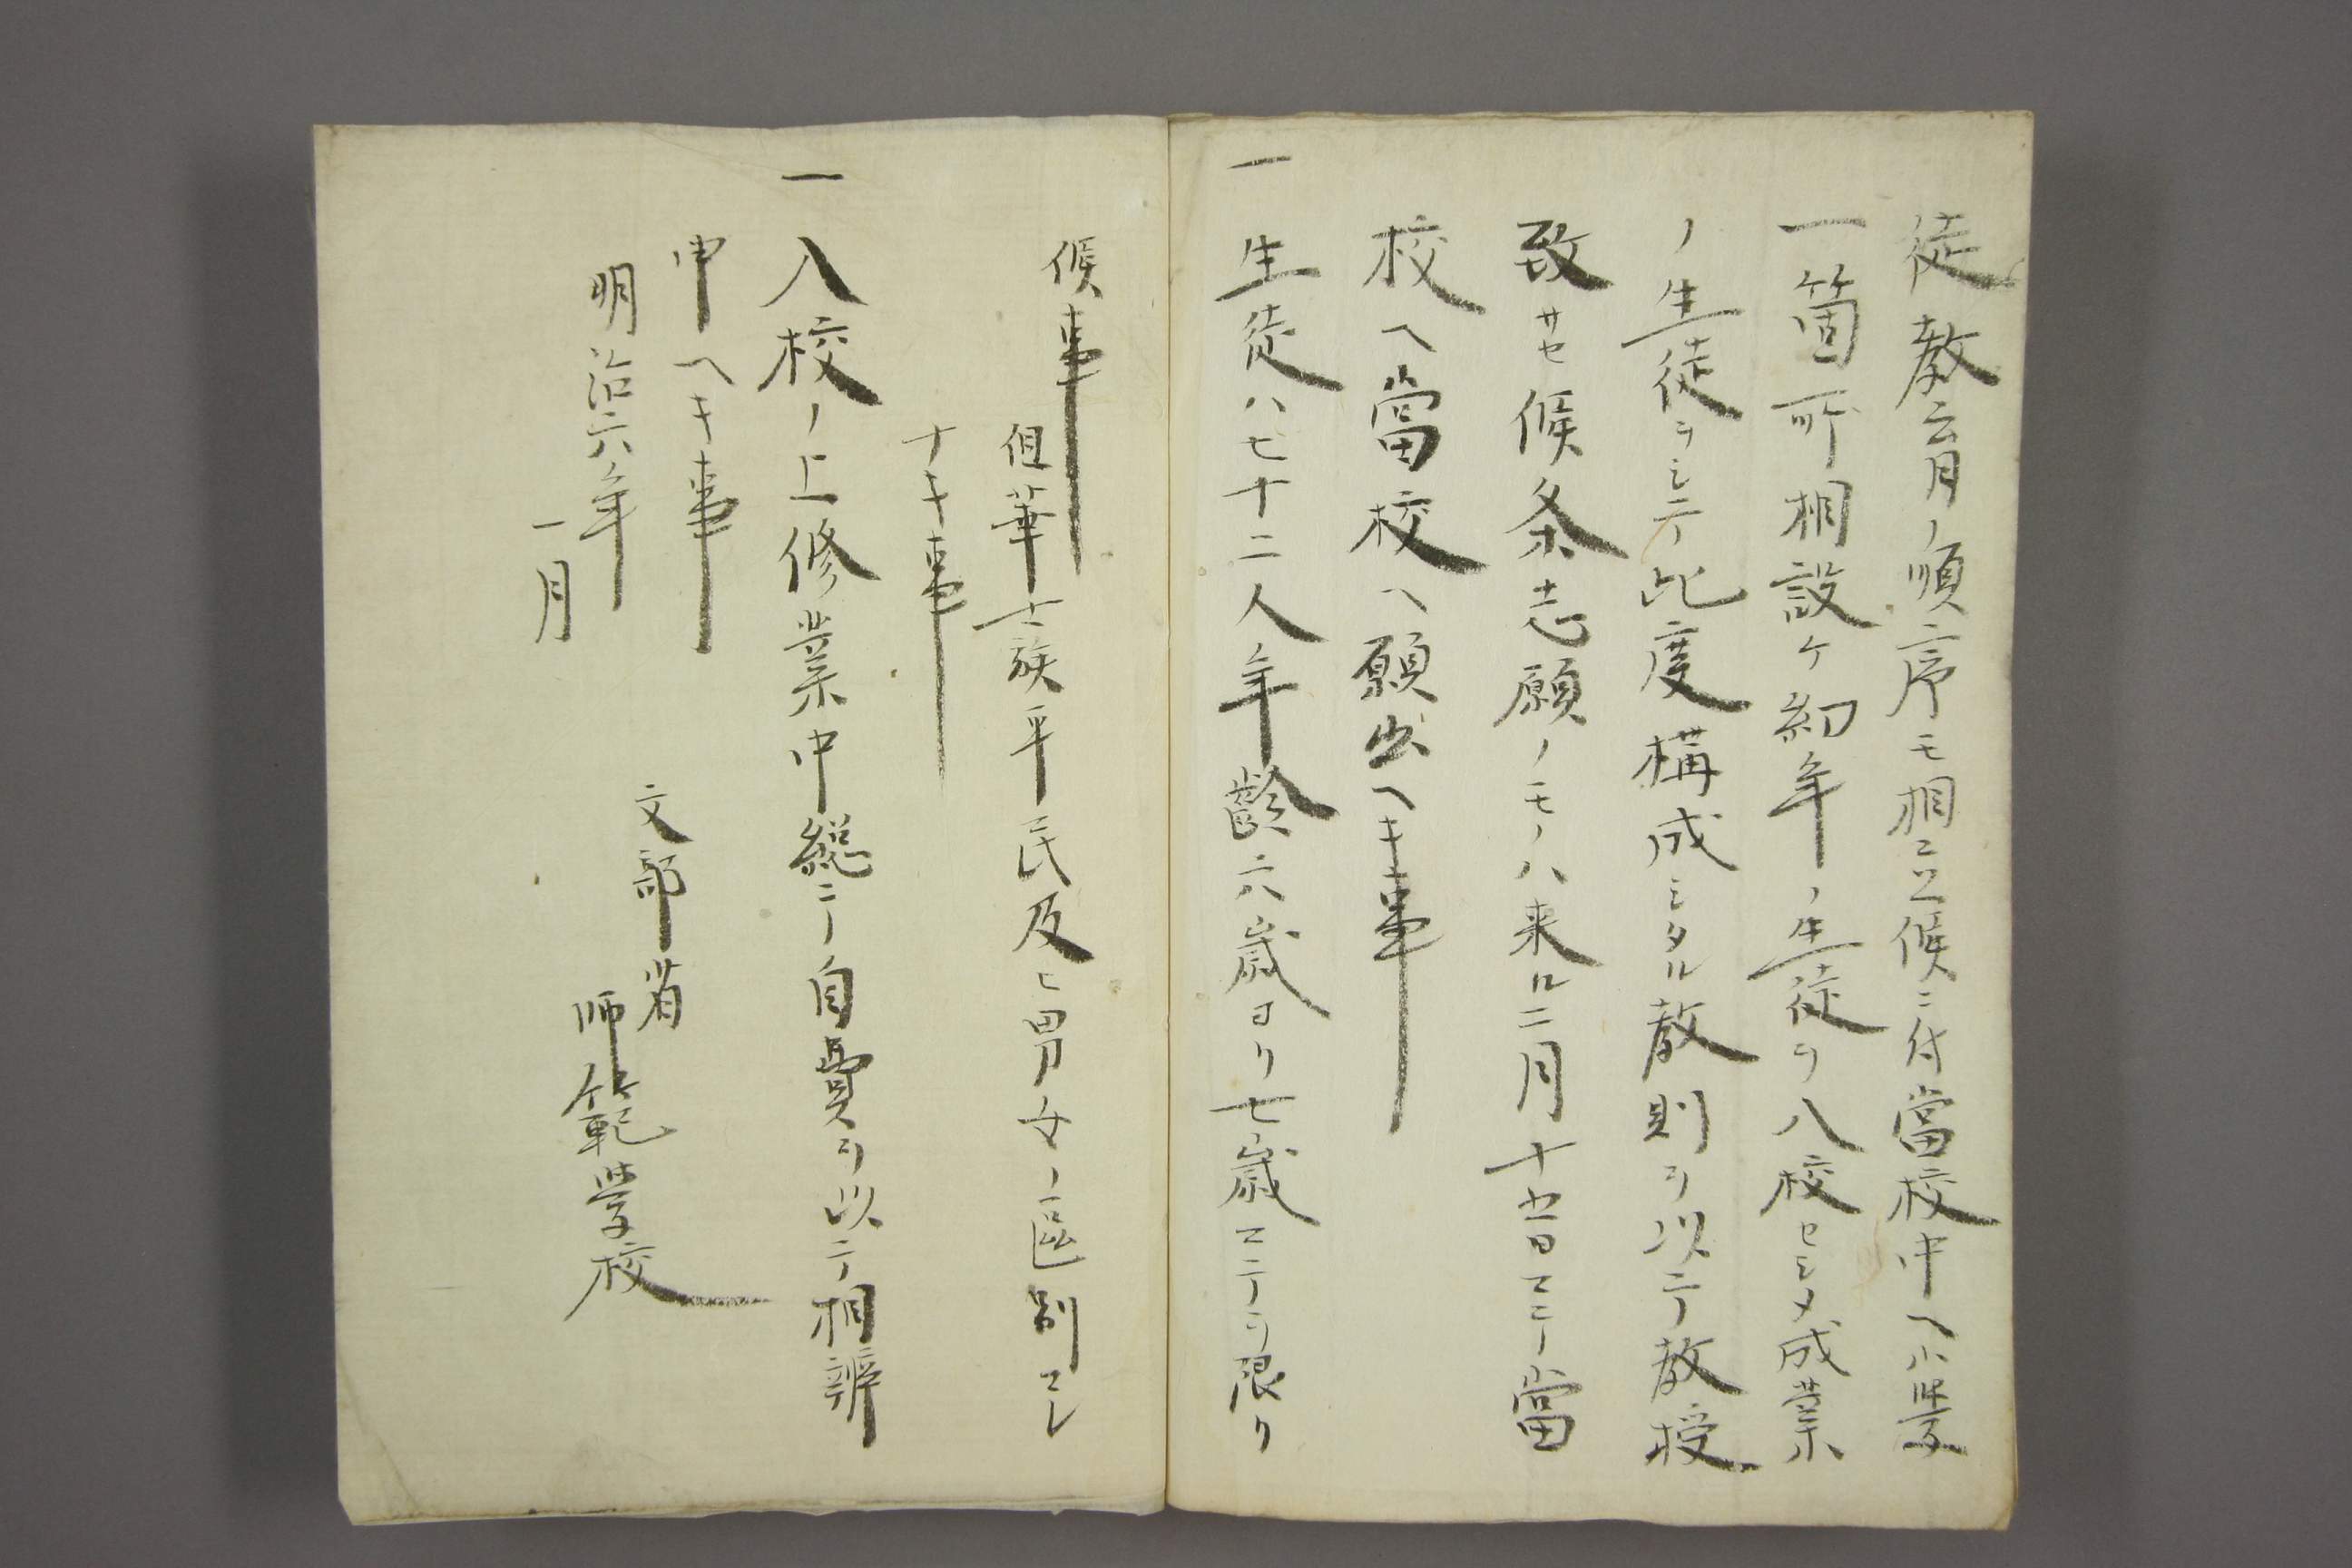 徒教育ノ順序モ相立候ニ付當校中ヘ小學
一箇所相設ケ幼年ノ生徒ヲ入校セシメ成業
ノ生徒ヲシテ此度構成シタル教則ヲ以テ教授
致サセ候条志願ノモノハ来ル二月十五日マテ當
校ヘ當校ヘ願出ヘキ事
一生徒ハ七十二人年齢六歳ヨリ七歳マテヲ限リ
候事
但華士族平民及ヒ男女ノ區別マレ
ナキ事
一入校ノ上修業中総テ自費ヲ以テ相辨
申ヘキ事
明治六年
一月
文部省
師範學校